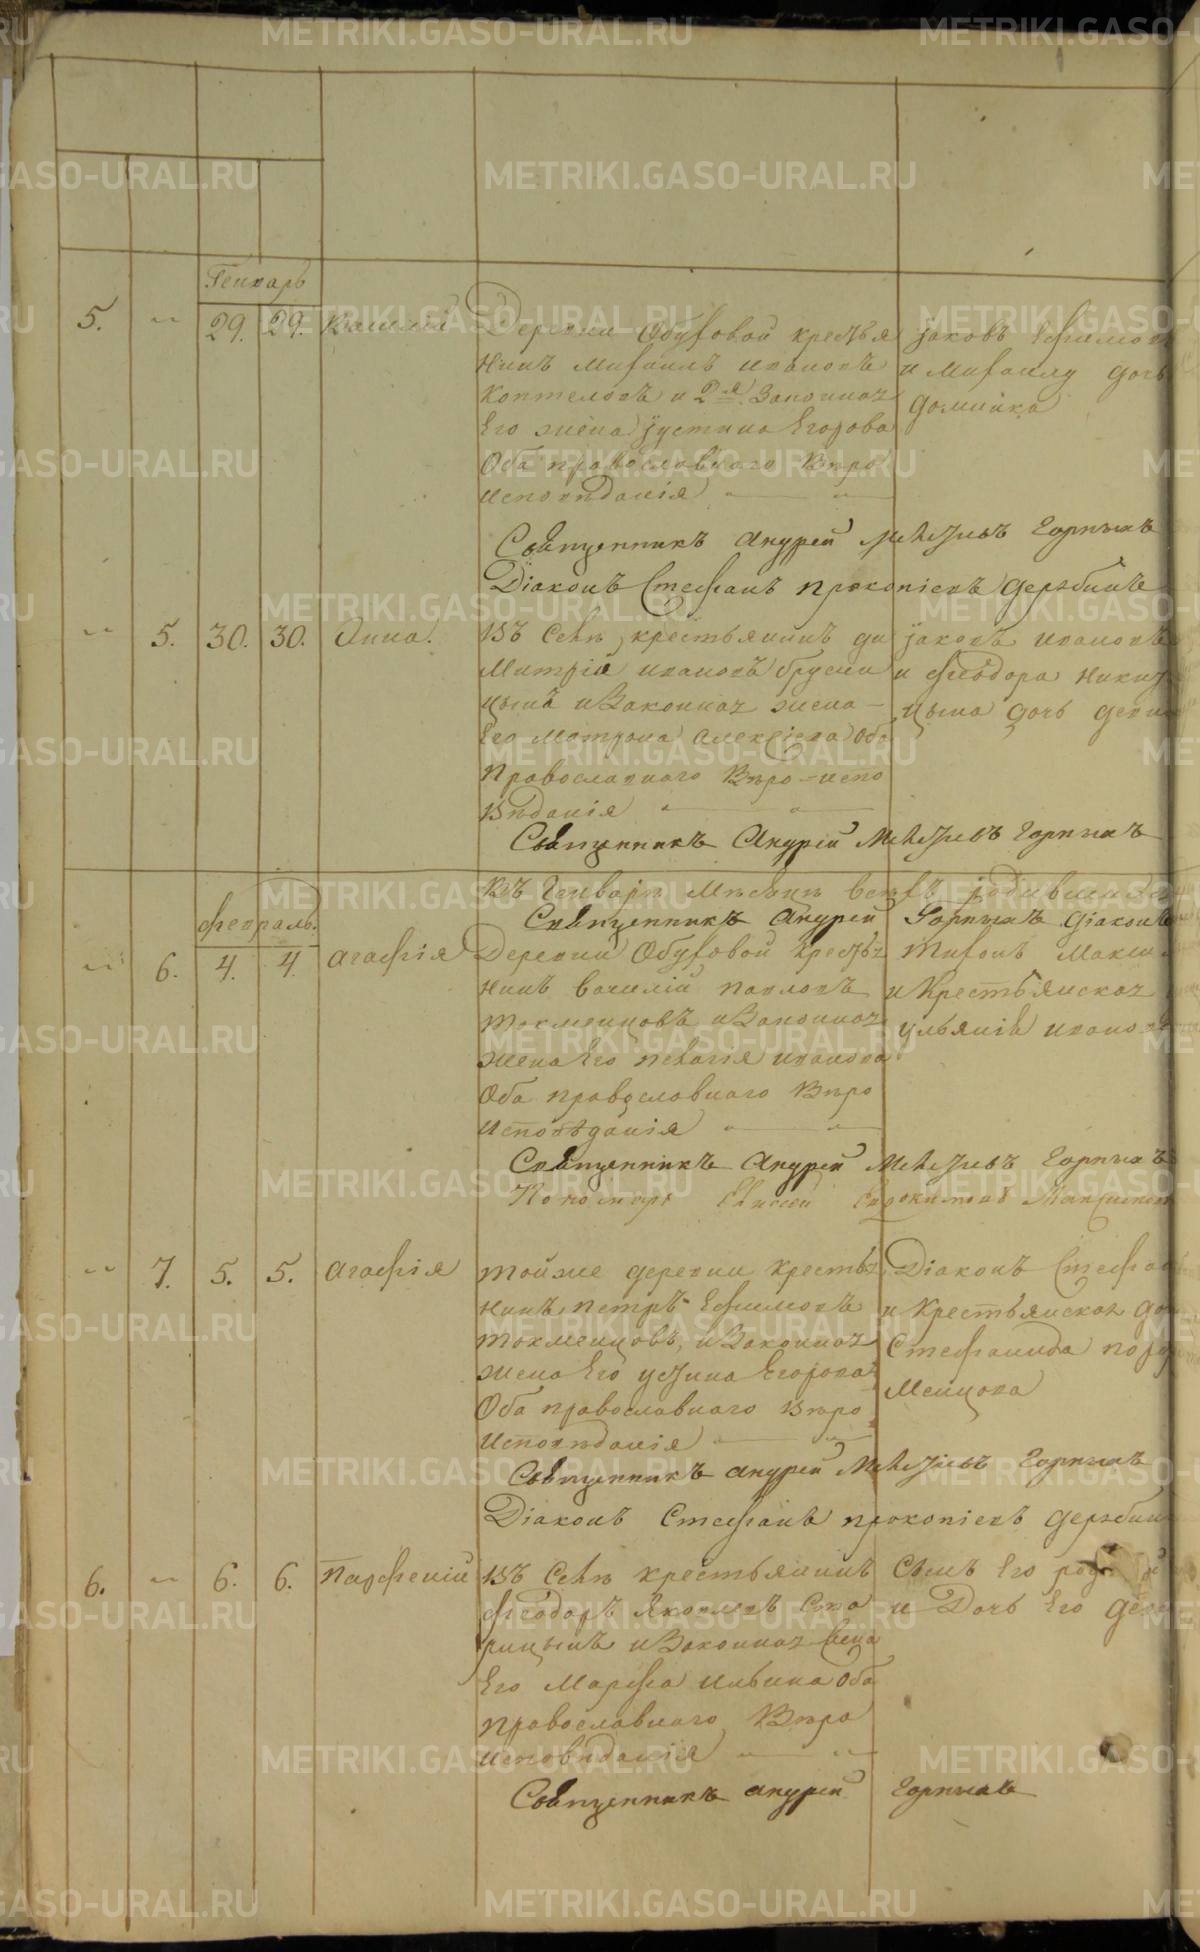 METRIKI.GASO-URAL.RU
Генварь
5. 29. 29. Василий Деревни Обуховой крестья
нинъ Михаилъ Ивановъ
Коптеловъ и 2я. Законная
Его жена Іустина Егорова
Оба православнаго Веро
исповеданія
Іаковъ Ефимовъ
и Михаилу дочь
Домника
Священникъ Андрей Горныхъ
Діаконъ Стефанъ Прокопіевъ Дерябинъ
5. 30. 30. Анна. Въ Селе крестьянинъ Ди
митрій Ивановъ Брусни
цынъ и Законная жена
Его Матрона Алексіева Оба
Православнаго Веро-испо
веданія
Іаковъ Ивановъ
и Феодора Никит
цына дочь
Священникъ Андрей Горныхъ
Въ Генваре Месяце всехъ родившихся
Священникъ Андрей Горныхъ Діаконъ
февраль.
6. 4. 4. Агафія Деревни Обуховой Крестья
нинъ Василій Павловъ
Токменцовъ и Законная
жена Его Пелагія Иванова
Оба православнаго Веро
Исповеданія
Тихонъ Макси
и Крестьянская
Ульянія Иванов
Священникъ Андрей Горныхъ
Пономарь Елисей Евдокимовъ
7. 5. 5. Агафія Тойже деревни Кресть
нинъ Петръ Ефимовъ
Токменцовъ, и Законная
жена Его Устина Егорова
Оба православнаго Веро
Исповеданія
Діаконъ Стефа
и Крестьянская до
Стефанида
менцова
Священникъ Андрей Горныхъ
Діаконъ Стефанъ Прокопіевъ Деряби
6. 6. 6. Парфеній Въ Селе крестьянинъ
Феодоръ Яковлевъ Ста
рицынъ и Законная жена
Его Марфа Ильина Оба
православнаго Веро
исповеданія
Сынъ Его род
и Дочь Его
Священникъ Андрей Горныхъ